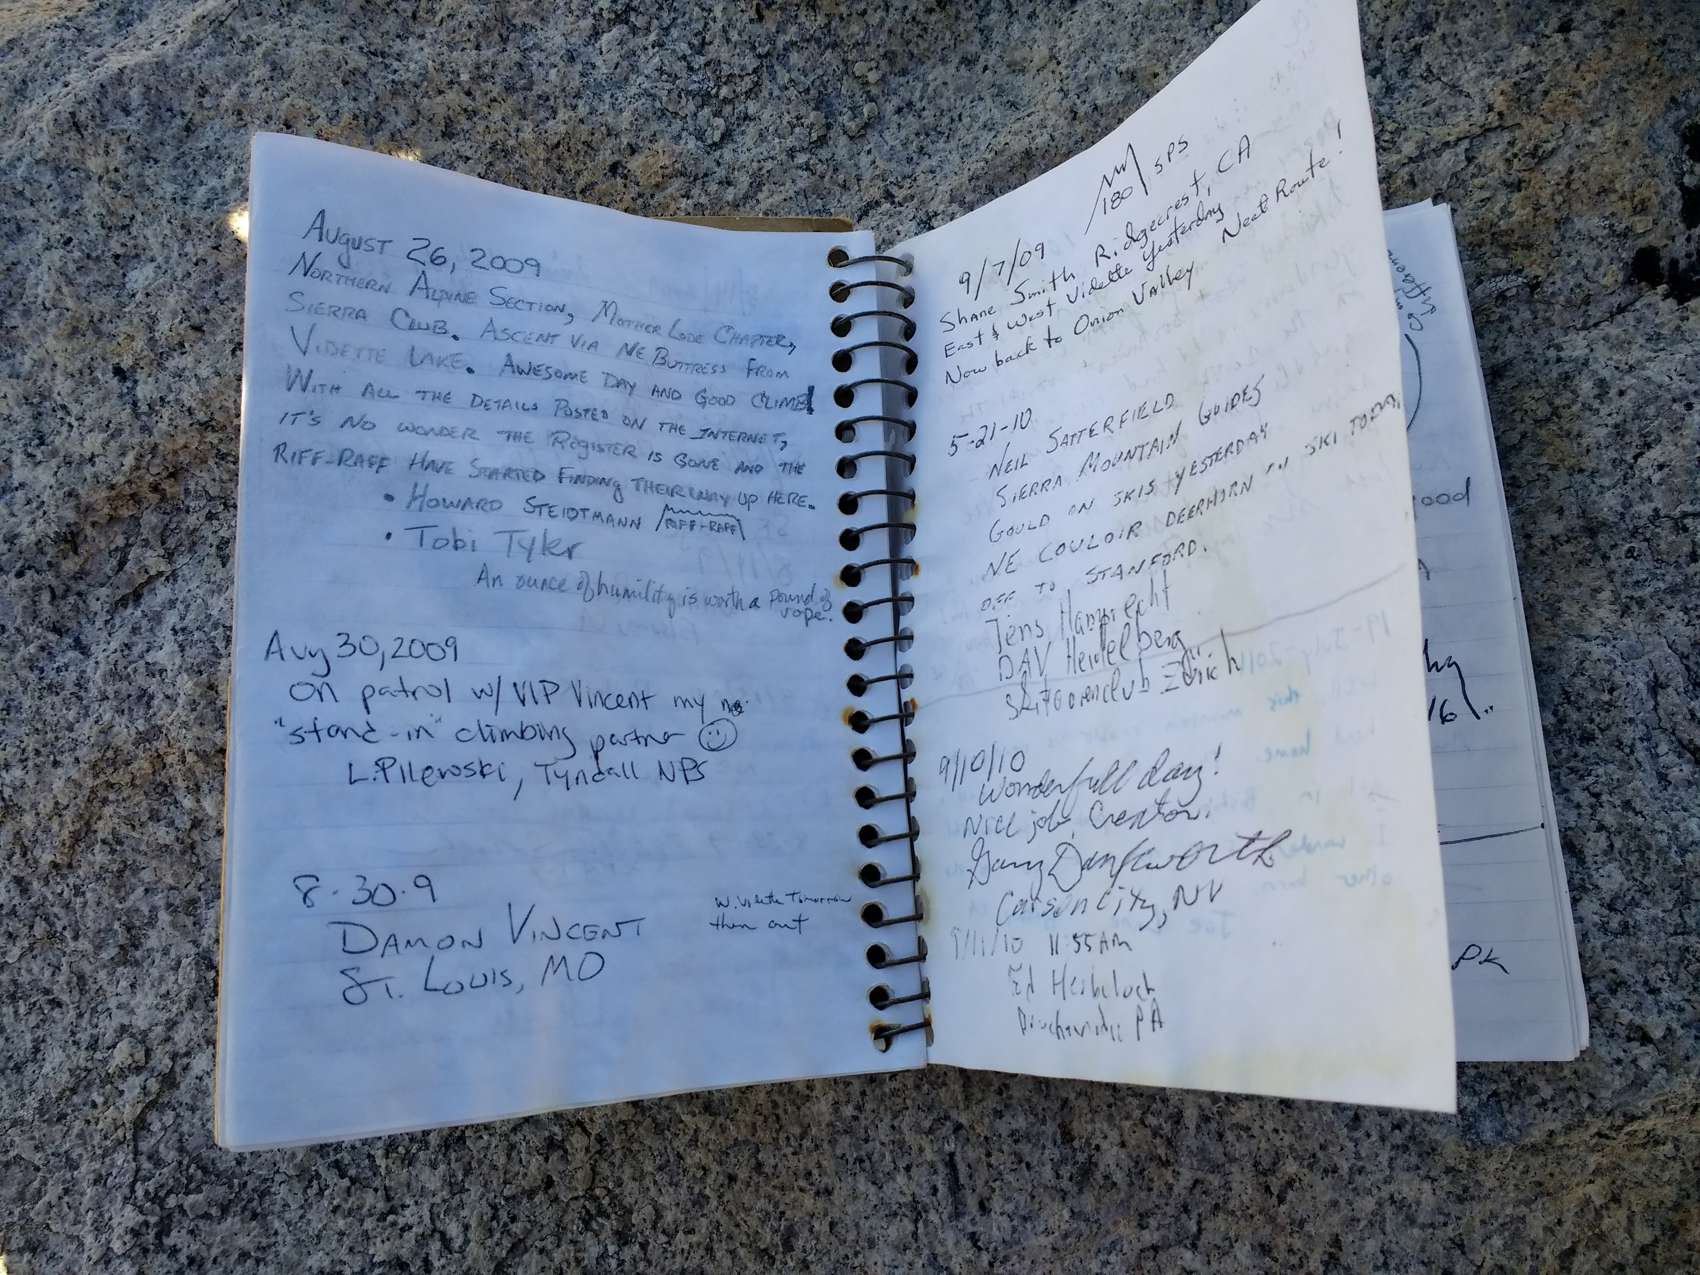 August 26, 2009
Northern Alpine Section, Mother Lode Chapter,
Sierra Club. Ascent via NE Buttress from
Vidette Lake. Awesome day and good climb!
With all the details posted on the internet,
it's no wonder the register is gone and the
riff-raff have started finding their way up here.
• Howard Steidtmann RIFF-RAFF
• Tobi Tyler
An ounce of humility is worth a pound of
rope.
Aug 30, 2009
On patrol w/ VIP Vincent my
"stand-in" climbing partner
L. Pilewski, Tyndall NPS
8.30.9
Damon Vincent
St. Louis, MO
W. Vidette Tomorrow
then out
180 SPS
9/7/09
Shane Smith Ridgecrest, CA
East & West Vidette Yesterday
Now back to Onion Valley. Neat Route!
5-21-10
- Neil Satterfield
Sierra Mountain Guides
Gould on skis yesterday
NE Couloir Deerhorn on ski today,
off to Stanford.
Jens Hamprecht
DAV Heidelberg
9/10/10
Wonderfull day!
Nice job, Creator.
Gary Dankworth
Carson City, NV
9/11/10 11:55 AM
Ed
PA
19-July-201
this
home
in
I
other
Joe
ood
16!
PK